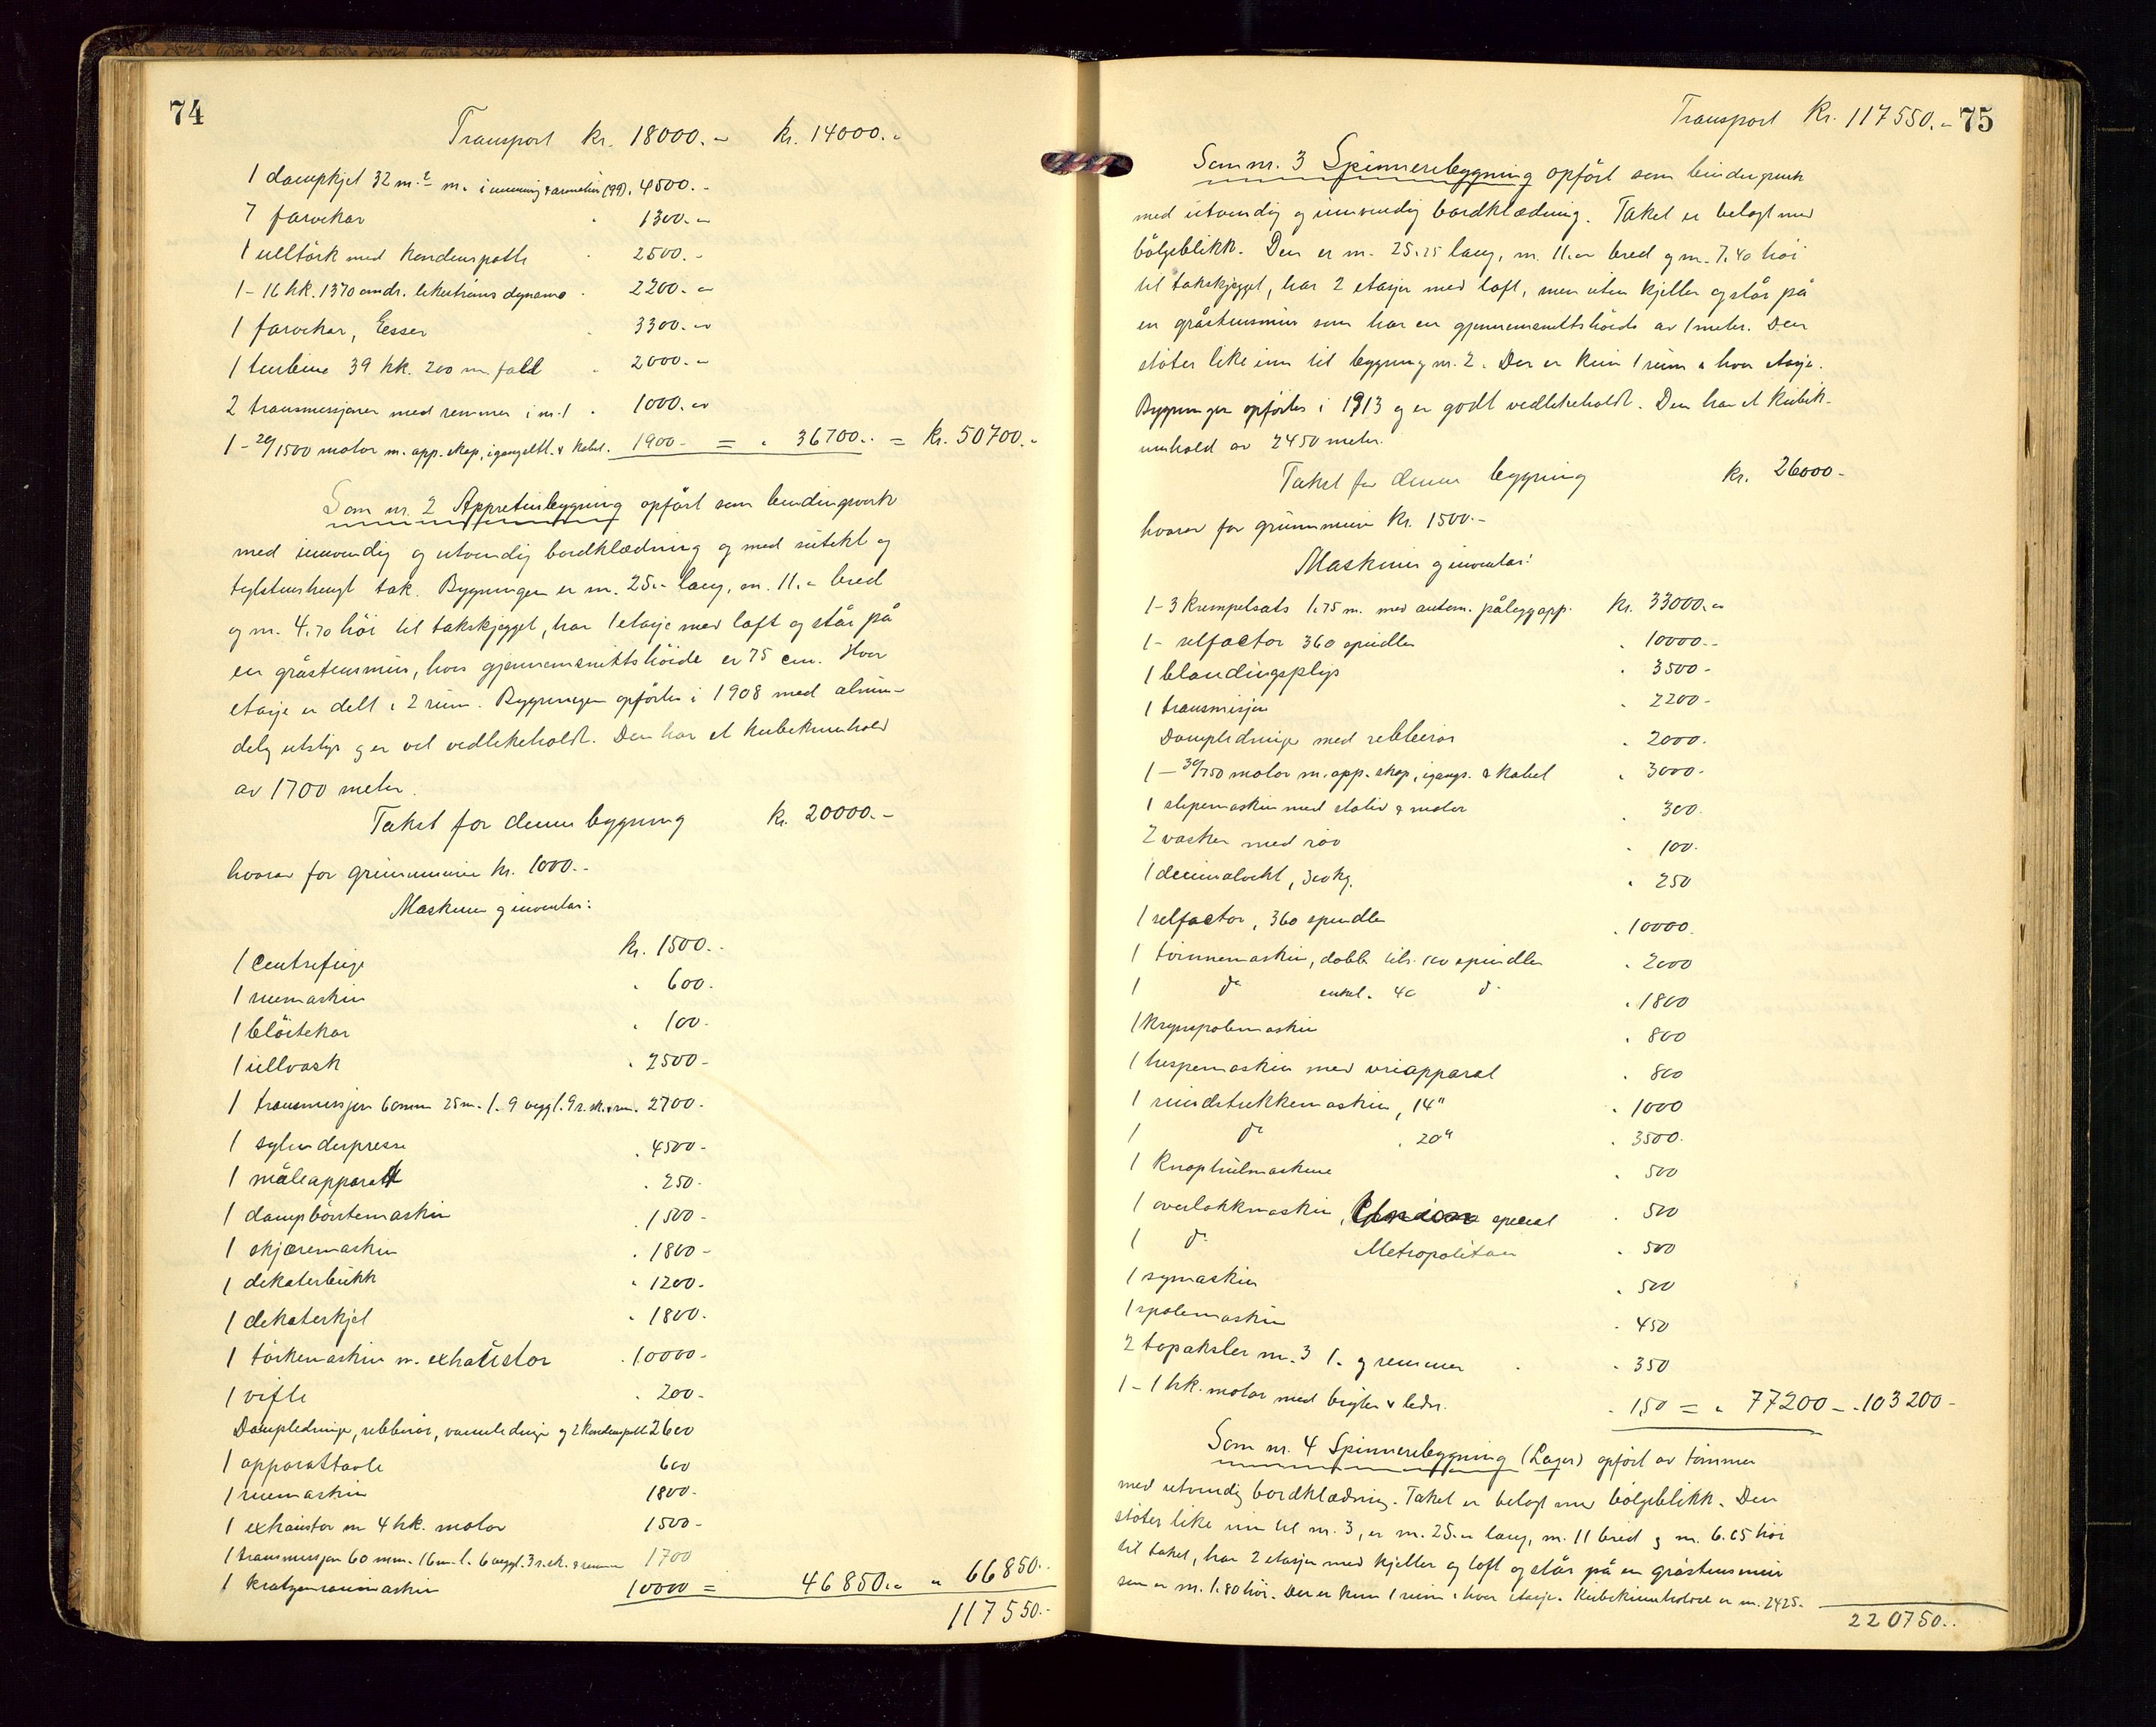 74
Transport kr. 18000.- kr. 14000.-
1 dampkjel 32 m.² m. innmuring & armatur (99). 4500.-
7 farvekar " 1300.-
1 ulltörk med kondenspotte " 2500.-
1- 16 hk. 1370 omdr. likeströms dynamo " 2200.-
1 farvekar, Esser " 3300.-
1 turbine 39 hk. 200 m. fald " 2000.-
2 transmissjoner med remmer i nr. 1 " 1000.-
1- 20/1500 motor m. app. skap, igangsett. & kabel. 1900.- = " 36700.- = Kr. 50700.-
Som nr. 2 Appreturbygning opfört som bindingverk
med innvendig og utvendig bordklædning og med sutekt og
teglstenhengt tak. Bygningen er m. 25.- lang, m. 11.- bred
og m. 4.70 höi til takskjegget, har 1 etasje med loft og står på
en gråstensmur, hvis gjennemsnittshöide er 75 cm. Hver
etasje er delt i 2 rum. Bygningen opförtes i 1908 med almin-
delig utstyr og er vel vedlikeholdt. Den har et kubikinnhold
av 1700 meter.
Takst for denne bygning kr. 20000.-
hvorav for grunnmuren kr. 1000.-
Maskiner og inventar:
1 centrifuge kr. 1500.-
1 ruemaskin " 600.
1 blötekar " 100.
1 ullvask " 2500-
1 transmissjon 60mm 25m. l. 9 veggl. 9 r. sk. & rem. 2700.
1 sylinderpresse " 4500-
1 måleapparat " 250.
1 dampbörstemaskin " 1500-
1 skjæremaskin " 1800-
1 dekaterbukk " 1200-
1 dekaterkjel " 1800.
1 törkemaskin m. exhaustor " 10000-
1 vifte " 200-
Dampledninger, ribberör, vannledninger og 2 kondenspott 2600
1 apparattavle 600
1 ruemaskin 1800-
1 exhaustor m 4 hk. motor 1500-
1 transmissjon 60 mm. 16 m. l. 6 veggl. 3 r. sk. & remmer 1700
1 kratzenraumaskin 10000 = 46850.- " 66850.-
117550.-
Transport Kr. 117550.- 75
Som nr. 3 Spinneribygning opfört som bindingverk
med utvendig og innvendig bordklædning. Taket er belagt med
bölgeblikk. Den er m. 25.25 lang, m. 11.- bred og m. 7.40 höi
til takskjegget, har 2 etasjer med loft, men uten kjeller og står på
en gråstensmur som har en gjennemsnittshöide av 1 meter. Den
stöter like inn til bygning nr. 2. Der er kun 1 rum i hver etasje.
Bygningen opförtes i 1913 og er godt vedlikeholdt. Den har et kubik-
innhold av 2450 meter.
Takst for denne bygning kr. 26000-
hvorav for grunnmuren kr. 1500.-
Maskiner og inventar:
1- 3 krempelsats 1.75 m. med autom. påleggapp. kr. 33000.-
1- selfactor 360 spindler " 10000.-
1 blandingsplys " 3500-
1 transmisjon " 2200-
Dampledninger med ribberör " 2000.
1- 30/750 motor m. app. skap, igangs. & kabel " 3000-
1 slipemaskin med stativ & motor " 300.
2 vasker med rör " 100.
1 decimalvekt, 300 kg. " 250
1 selfactor, 360 spindler " 10000.
1 tvinnemaskin, dobb. tils. 100 spindler " 2000
1 do enkel. 40 do " 1800
1 krysspolemaskin " 800
1 hespemaskin med vriapparat " 800
1 rundstrikkemaskin, 14" " 1000
1 do " 20" " 3500.
1 Knaphulmaskine " 500
1 overlokkmaskin, Union special " 500
1 do Metropolitan " 500
1 symaskin " 500
1 spolemaskin " 450
2 topaksler m. 3 l. og remmer " 350
1- 1 hk. motor med bryter & ledn. " 150 = " 77200- " 103200-
Som nr. 4 Spinneribygning (Lager) opfört av tömmer
med utvendig bordklædning. Taket er belagt med bölgeblikk. Den
stöter like inn til nr. 3, er m. 25.- lang, m. 11 bred og m. 6.65 höi
til taket, har 2 etasjer med kjeller og loft og står på en gråstensmur
som er m. 1.80 höi. Der er kun 1 rum i hver etasje. Kubikinnholdet er m. 2425.
220750.-